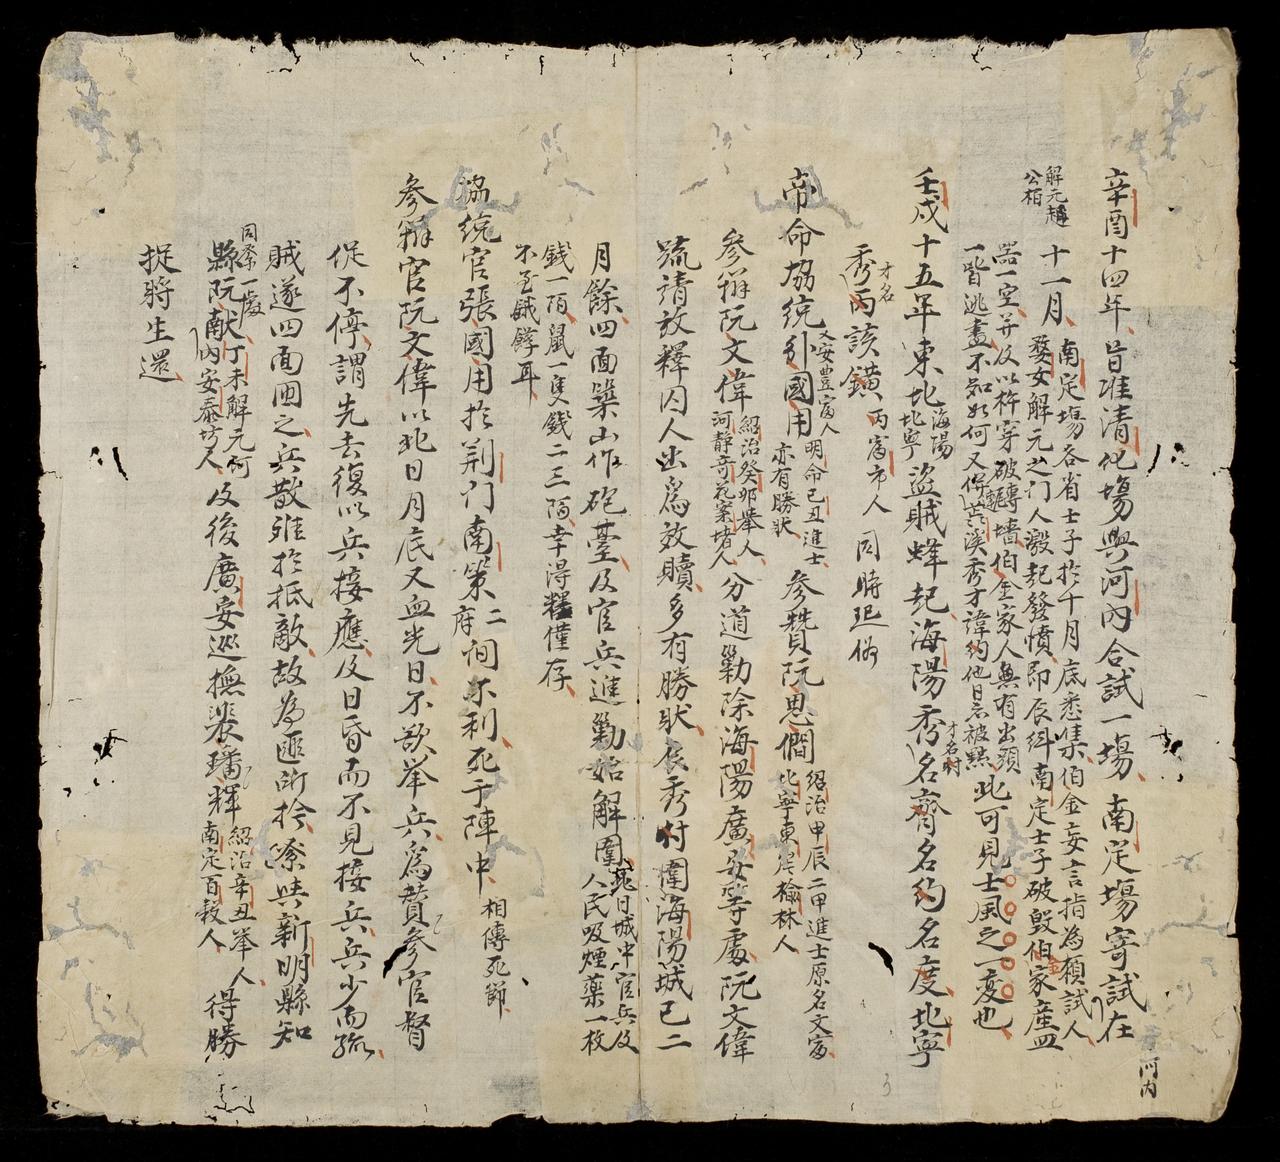 辛酉十四年旨准清化塲與河內合試一塲南定塲寄試在
河內
解元趙
公栢
十一月南定塲各省士子於十月底悉集伯金妄言指為頑試人
婺女解元之门人激起發憤即辰糾南定士子破毀伯金家產皿
器一空并及以杵穿破磚墙伯金家人無有出頭
一皆逃晝不知如何又傳慕溪秀才諱約他日亦被黜
此可見士風之一變也
壬戌十五年東北海陽北寧盜賊蜂起海陽秀名齊名約名度北寧
才名
秀丙該鐄丙富市人同時起俗
帝命協統引國用又安豊富人明命己丑進士亦有勝狀參贊阮思僩紹治甲辰二甲進士原名文富北寧東岸榆林人
參辦阮文偉紹治癸卯举人河靜奇花寨堵人分道勦除海陽廣安等處阮文偉
疏請放釋囚人出為效贖多有勝狀辰秀付圍海陽城已二
月餘四面築山作砲臺及官兵進勦始解圍是日城中官兵及
人民吸煙藥一枚
錢一陌鼠一隻錢二三陌幸得糧僅存
不至餓殍耳
協統官張國用於荆门南策二府间不利死于陣中相傳死節
參辦官阮文偉以此日月底又血光日不欲举兵為贊參官督
促不停謂先去復以兵接應及日昏而不見接兵兵少而孤
賊遂四面囬之兵散难於抵敵故為匪所拎嘹哄新明縣知
縣阮献丁未解元河內安泰坊人同祭一處及後廣安巡撫裴璠輝紹治辛丑举人南定百穀人得勝
捉將生還